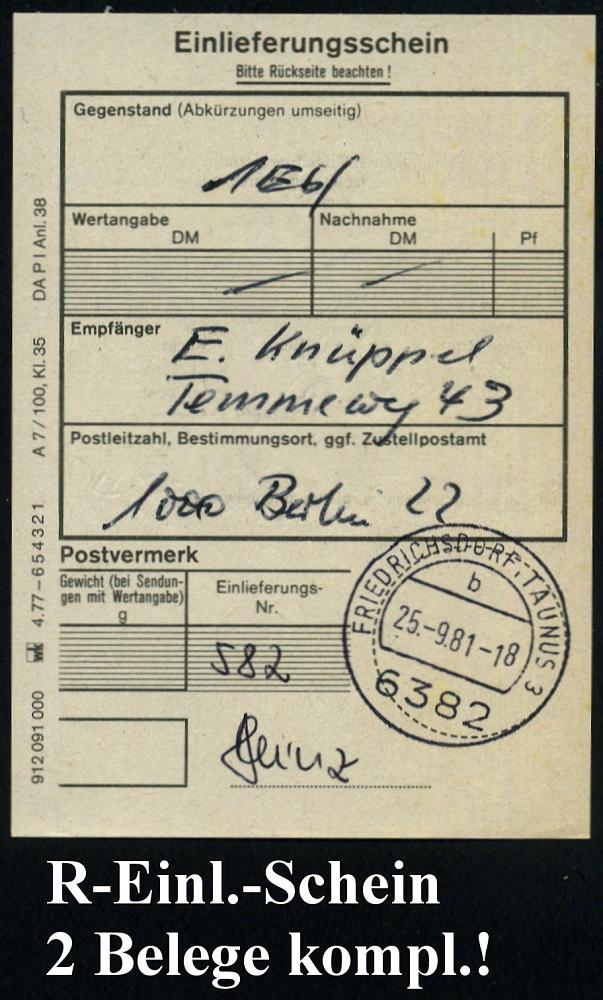 Einlieferungsschein
Bitte Rückseite beachten!
Gegenstand (Abkürzungen umseitig)
1Eb/
Wertangabe
DM
Nachnahme
DM
Pf
Empfänger
E. Knüppel
Temmeweg 43
Postleitzahl, Bestimmungsort, ggf. Zustellpostamt
1000 Berlin 22
Postvermerk
Gewicht (bei Sendun-
gen mit Wertangabe)
g
Einlieferungs-
Nr.
582
FRIEDRICHSDORF, TAUNUS 3
b
25.-9.81-18
6382
912 091 000 wk 4.77-654321 A 7/100, Kl. 35 DA P I Anl. 38
R-Einl.-Schein
2 Belege kompl.!